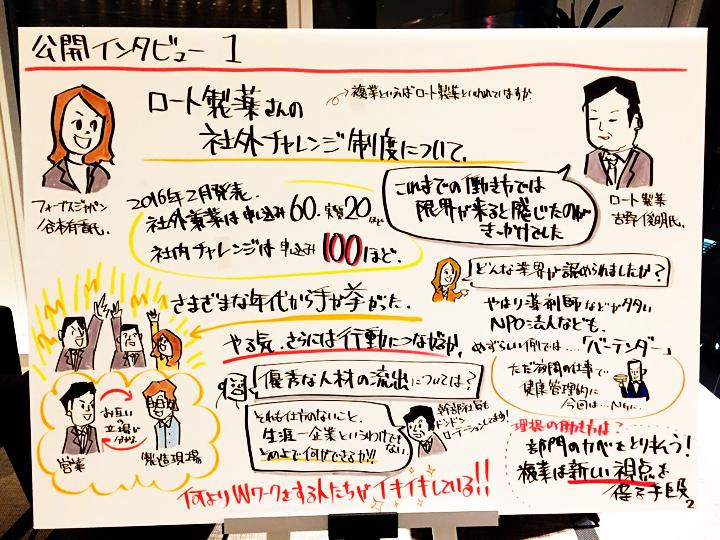 公開インタビュー 1
ロート製薬さんの
社外チャレンジ制度について。
複業といえばロート製薬といわれていますが
フォーブスジャパン
谷本有香氏.
ロート製薬
吉野俊明氏.
2016年2月発表.
社外兼業は申し込み60. 実質20ほど
社内チャレンジは申込み100ほど.
これまでの働き方では
限界が来ると感じたのが
きっかけでした
さまざまな年代から手が挙がった.
やる気、さらには行動につながるか.
どんな業界が認められましたか?
やはり薬剤師などが多い
NPO法人なども.
めずらしい例では.....「バーテンダー」
ただ夜間の仕事で..
健康管理的に
今回は...NGに.
優秀な人材の流出については?
それも仕方のないこと.
生涯一企業というわけでもない
その上で何ができるか!!
幹部社員も
ドンドン
ローテーションしてます!
お互いの
立場に
営業
製造現場
理想の働き方は?
部門のカベをとり払う!
複業は新しい視点を
得る手段
2
何よりWワークをする人たちがイキイキしている!!